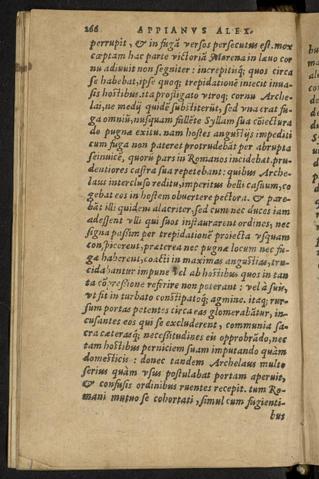 266 APPIANVS ALEX.
perrupit, & in fugã versos persecutus est. mox
cœptam hac parte victoriã Murena in lævo cor
nu adiuuit non segniter: increpitisq́; quos circa
se habebat, ipse quoq; trepidationẽ iniecit inua-
sis hostibus. ita profligato vtroq; cornu Arche-
lai, ne medij quidẽ substiterũt, sed vna erat fu-
ga omniũ, nusquam fallẽte Syllam sua cõiectura
de pugna exitu. nam hostes angustijs impediti
cum fuga non pateret protrudebãt per abrupta
seinuicẽ, quorũ pars in Romanos incidebat. pru-
dentiores castra sua repetebant: quibus Arche-
laus intercluso reditu, imperitus belli casuum, co
gebat eos in hostem obuertere pectora. & pare-
bãt illi quidem alacriter, sed cum nec duces iam
adessent vlli qui suos instaurarent ordines, nec
signa passim per trepidationẽ proiecta vsquam
conspicerent, præterea nec pugnæ locum nec fu-
ga haberent, coacti in maximas angustias, tru-
cidabantur impune vel ab hostibus quos in tan
ta cõpressione referire non poterant: vel à suis,
vt fit in turbato constipatoq́; agmine. itaq; rur-
sum portas petentes circa eas glomerabãtur, in-
cusantes eos qui se excluderent, communia sa-
cra cæterasq́; necessitudines eis opprobrãdo, nec
tam hostibus perniciem suam imputando quàm
domesticis: donec tandem Archelaus multo
serius quàm vsus postulabat portam aperuit,
& confusis ordinibus ruentes recepit. tum Ro-
mani mutuo se cohortati, simul cum fugienti-
bus